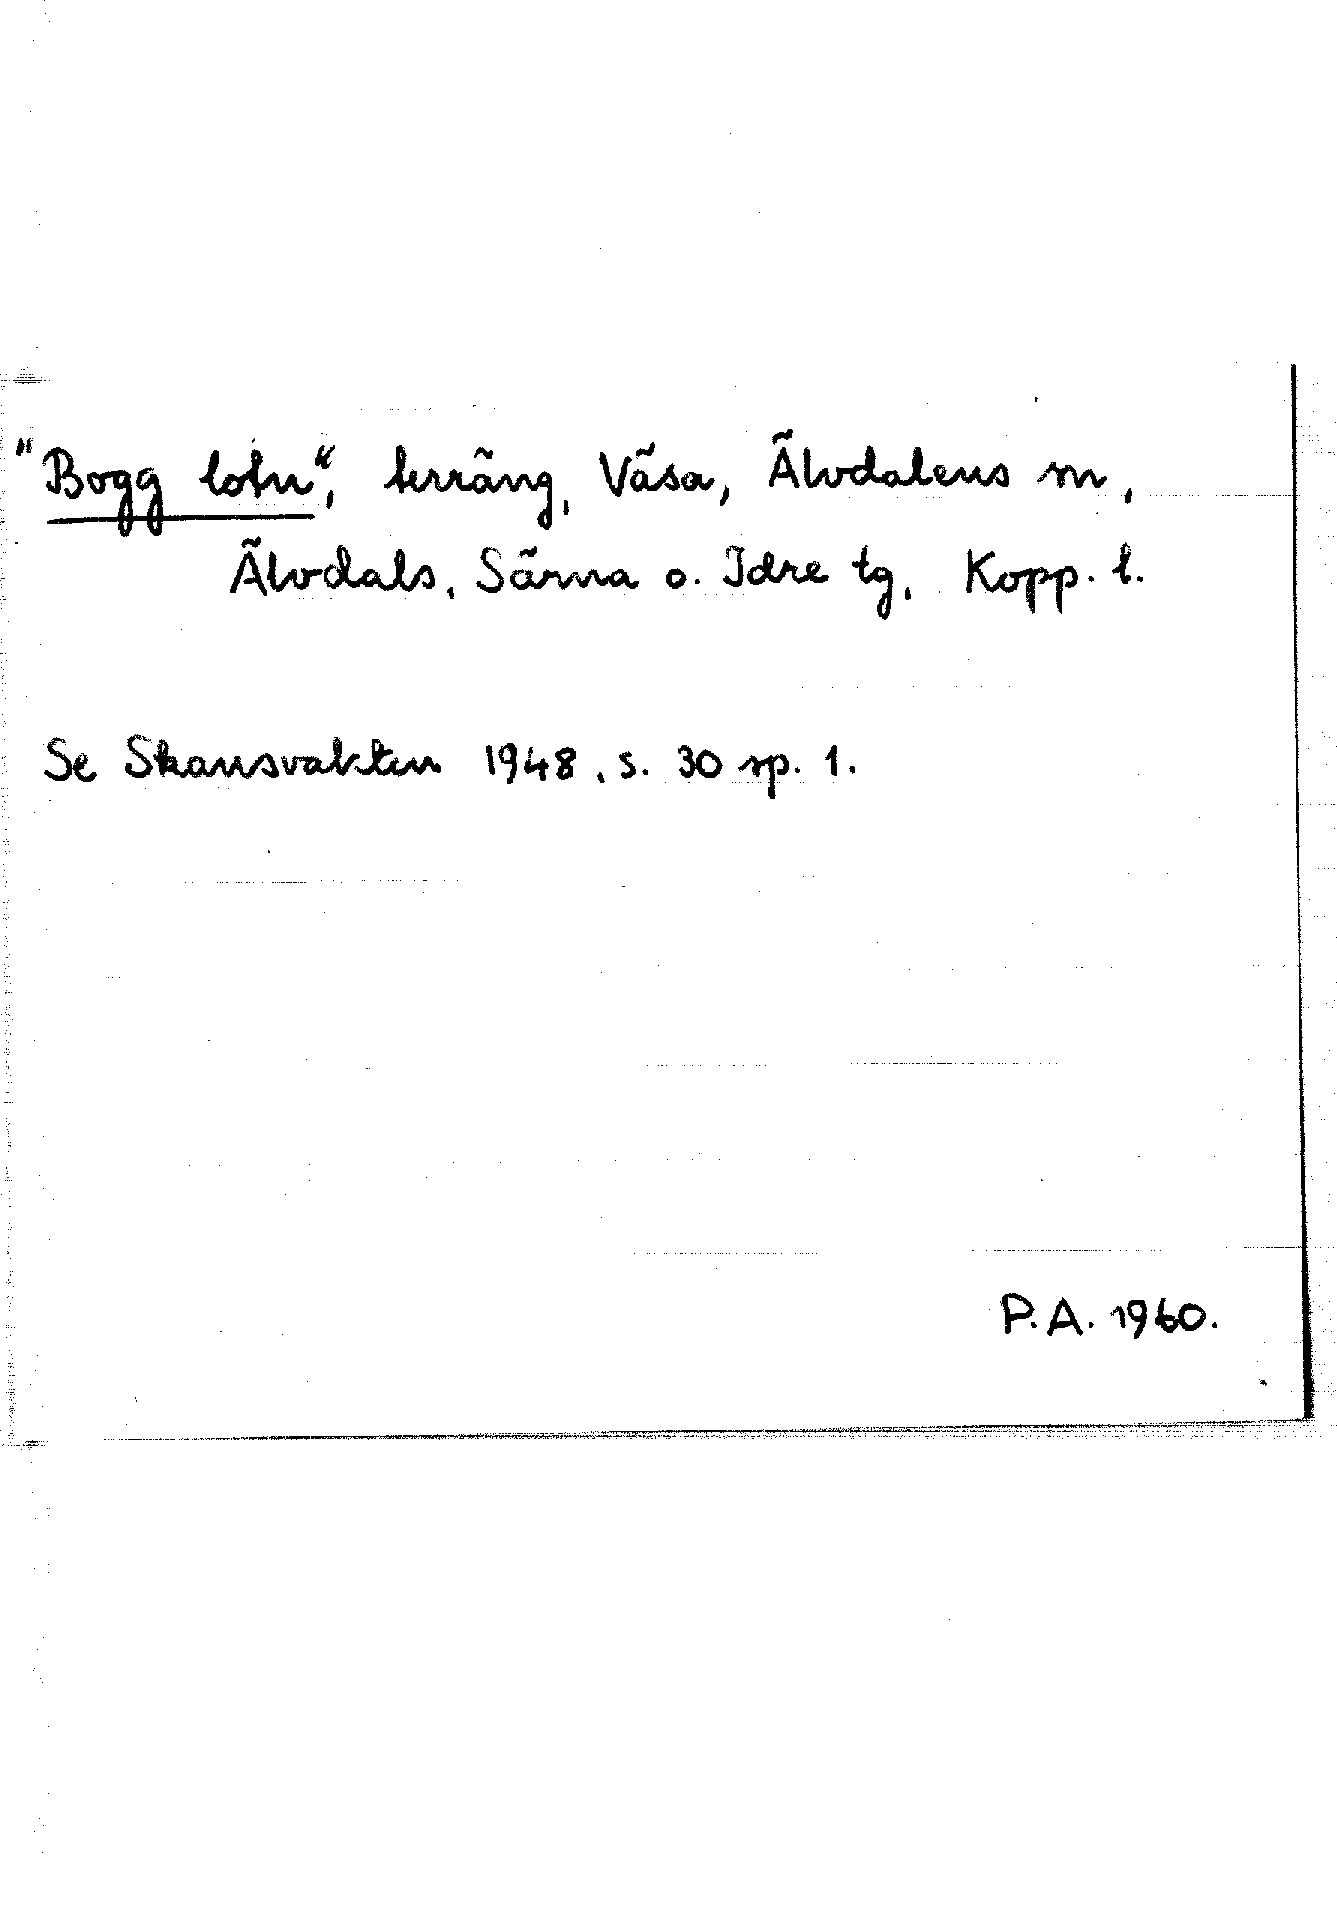 "Bogg lotn", terräng, Väsa, Älvdalens sn,
Älvdals, Särna o. Idre tg, Kopp. l.
Se Skansvakten 1948, s. 30 sp. 1.
P.A. 1960.